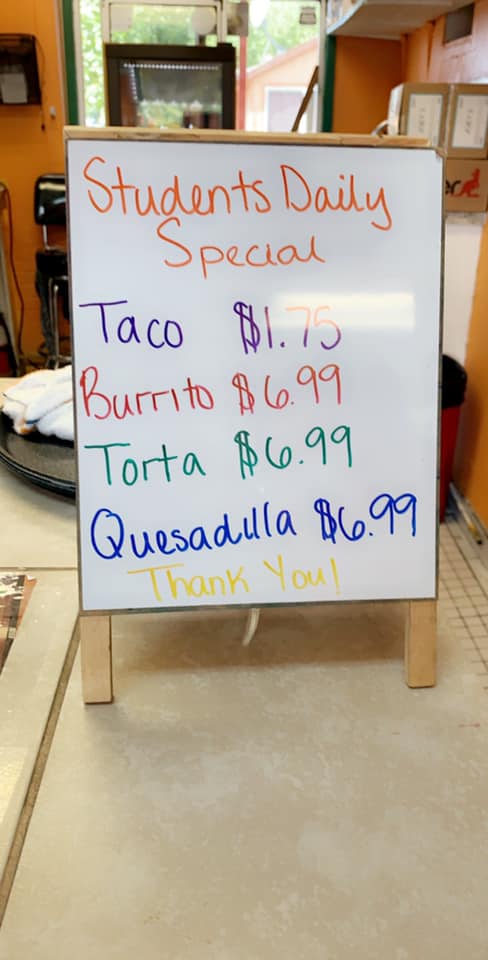 Students Daily
Special
Taco $1.75
Burrito $6.99
Torta $6.99
Quesadilla $6.99
Thank You!